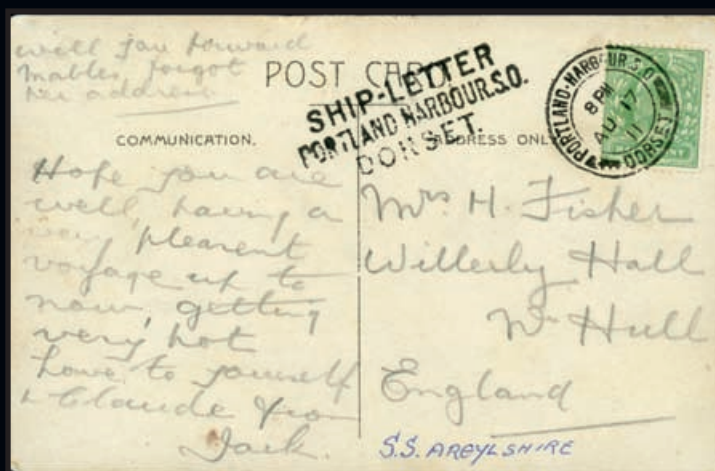 will you forward
Mables, forgot
her address
POST CARD
SHIP-LETTER
PORTLAND HARBOUR.S.O.
DORSET.
PORTLAND-HARBOUR.S.O
8 PM
AU 17
11
DORSET
COMMUNICATION.
ADDRESS ONLY
Hope you are
well, having a
very pleasent
voyage up to
now, getting
very hot
love to yourself
& Claude from
Jack.
Mrs H. Fisher
Willerly Hall
Nr Hull
England
S.S. ARGYLSHIRE